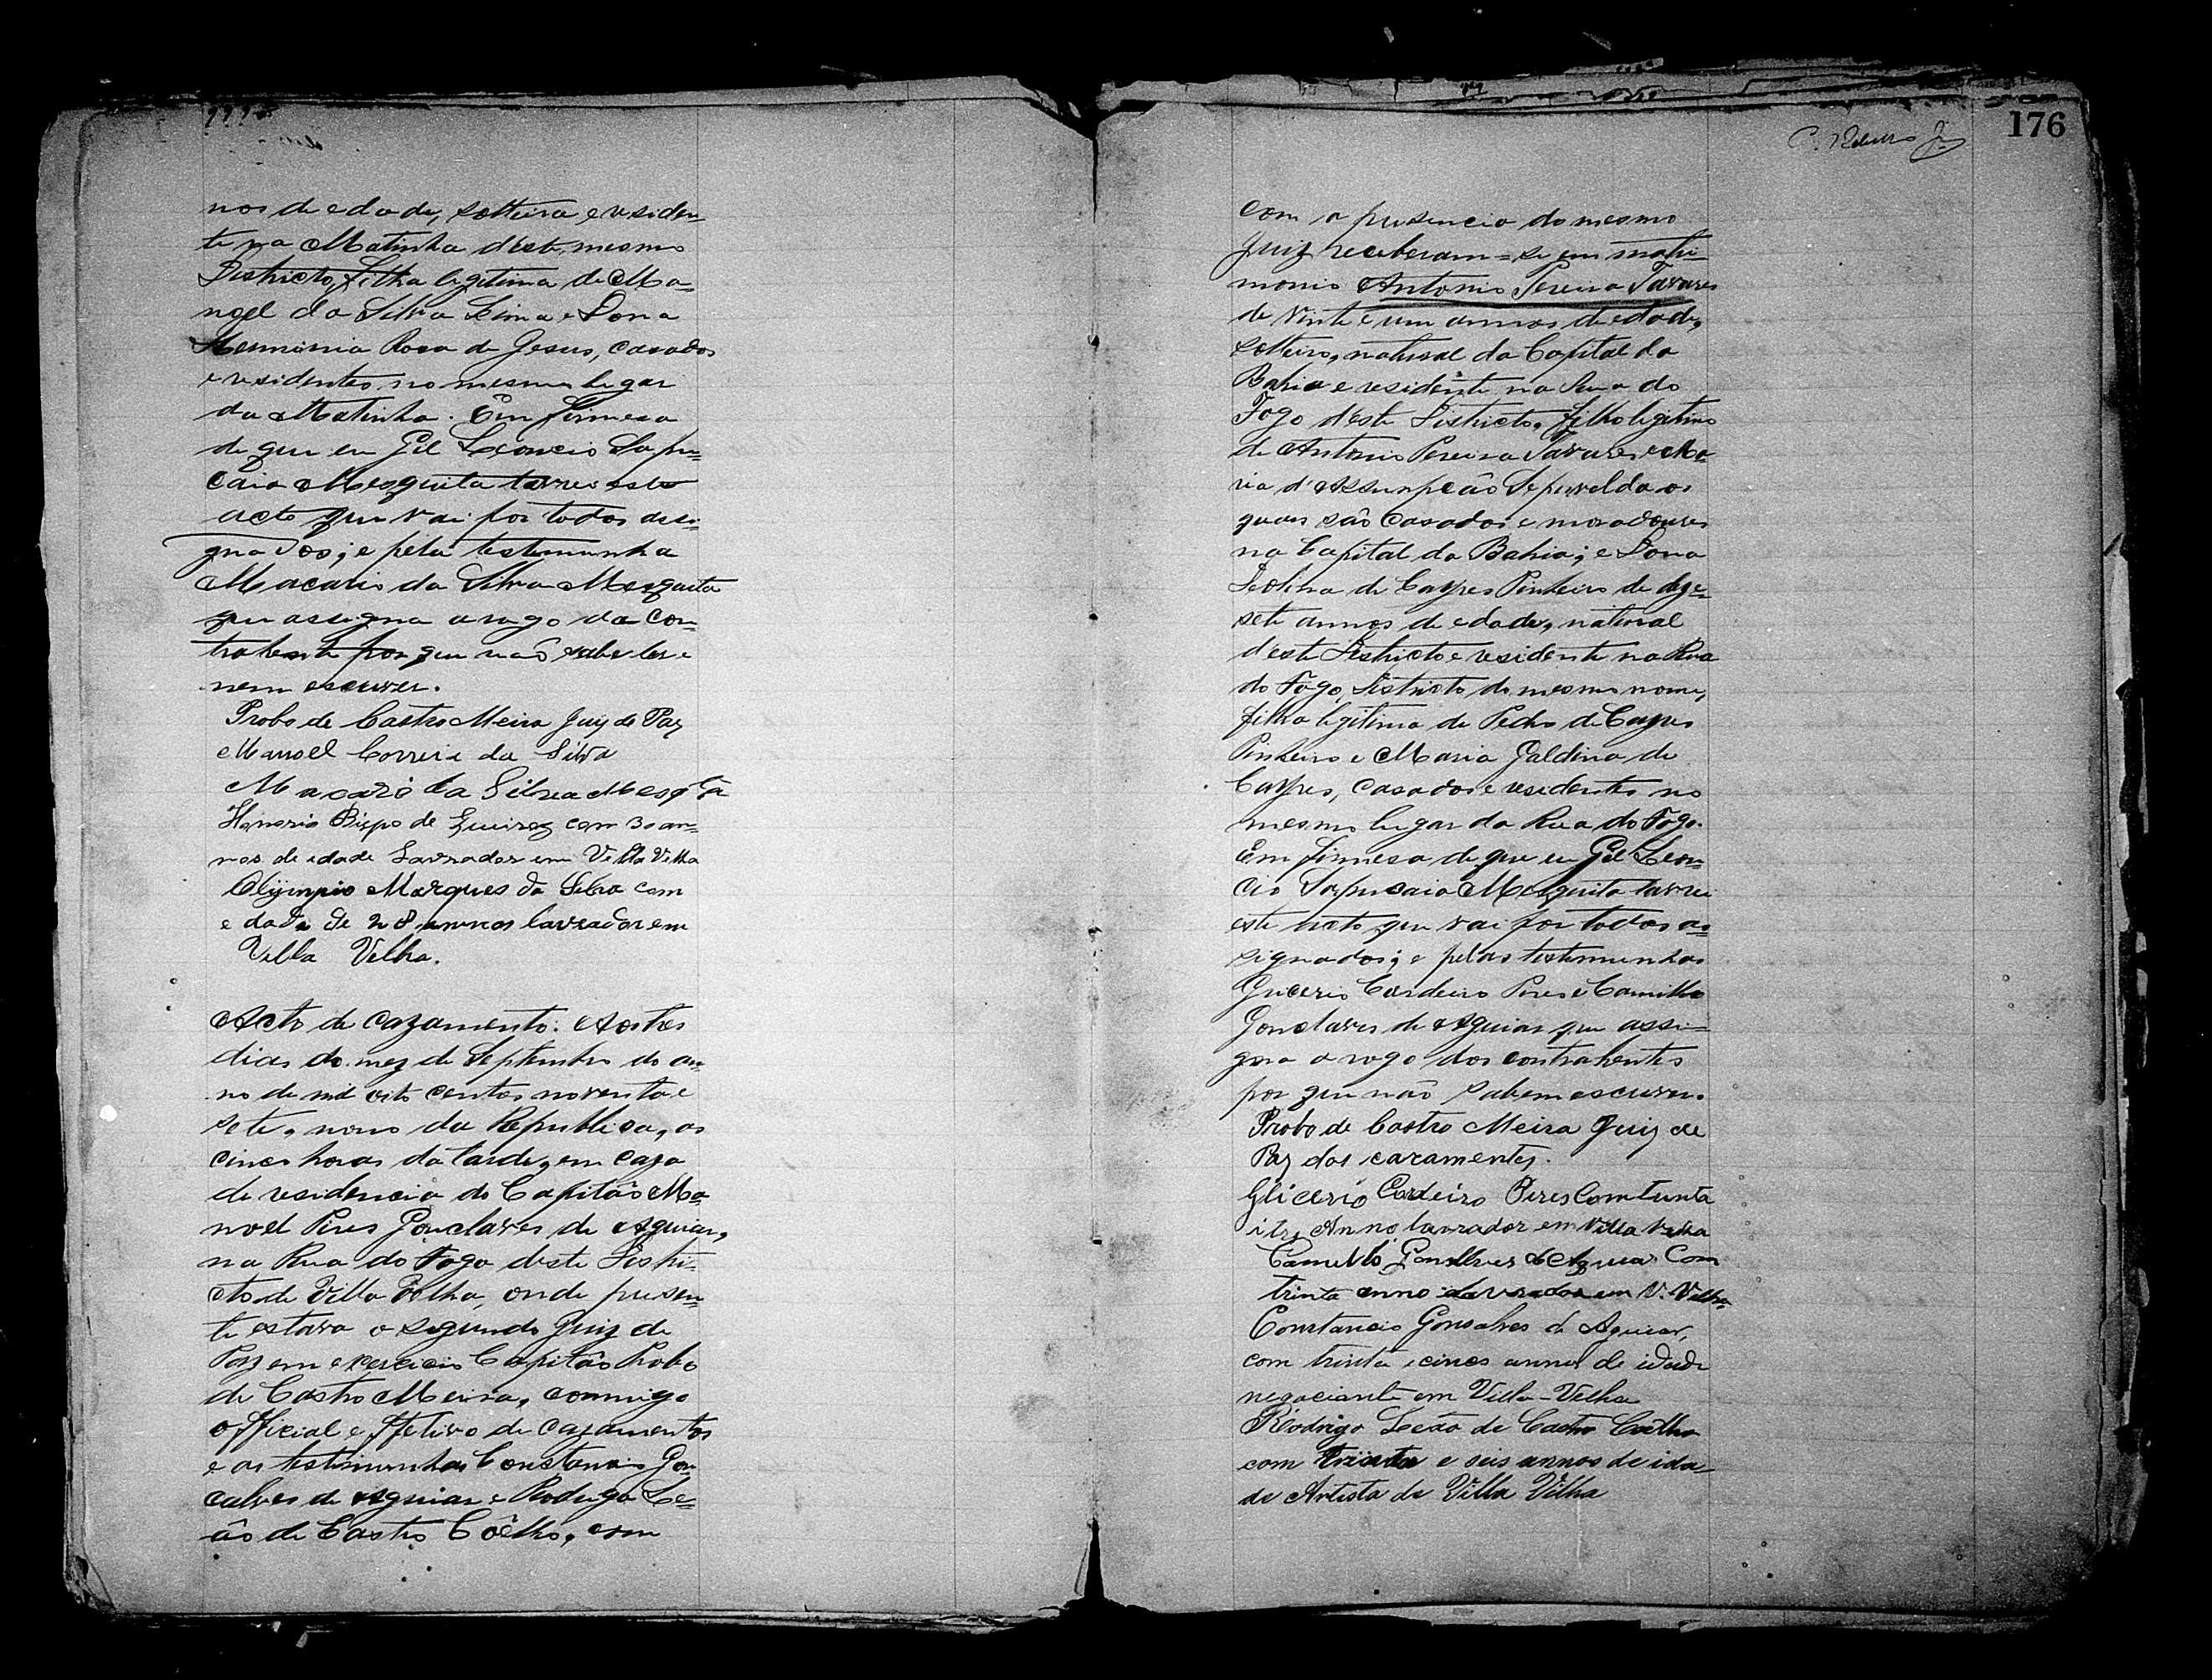 nos de edade, solteira e residen-
te na Matinha d'este mesmo
Districto, filha legitima de Ma-
noel da Silva Lima e Dona
Herminia Rosa de Jesus, casados
e residentes no mesmo lugar
da Matinha. Em firmesa
de que eu Gil Leoncio Sapu-
caia Mesquita lavrei este
acto que vai por todos assi-
gnados; e pela testemunha
Macario da Silva Mesquita
que assigna a rogo da con-
trahente por que não sabe ler e
nem escrever.
Probo de Castro Meira Juiz de Paz
Manoel Correia da Silva
Macario da Silva Mesqta
Honorio Bispo de Queiroz com 30 an-
nos de edade Lavrador em Villa Velha
Olÿmpio Marques da Silva com
edade de 28 annos lavrador em
Villa Velha.
Acto de cazamento. Aos tres
dias do mez de Septembro do an-
no de mil oito centos noventa e
sete, nono da Republica, as
cinco horas da tarde, em caza
de residencia do Capitão Ma-
noel Pires Gonclaves de Aguiar,
na Rua do Fogo deste Distri-
cto de Villa Velha, onde presen-
te estava o segundo Juiz de
Paz em exercicio Capitão Probo
de Castro Meira, commigo
official effetivo de cazamentos
e as testimunhas Constancio Gon-
calves de Aguiar e Rodrigo Le-
ão de Castro Côelho, com
176
com a presencia do mesmo
Juiz receberam-se em matri-
monio Antonio Pereira Tavares
de vinte e um annos de edade,
solteiro, natural da Capital da
Bahia e residente na Rua do
Fogo d'este Districto, filho legitimo
de Antonio Pereira Tavares e Ma-
ria d'Assumpcão Sepurelda os
quaes são casados e moradores
na Capital da Bahia; e Dona
Leolina de Cayres Pinheiro de deze-
sete annos de edade, natural
d'este Districto e residente na Rua
do Fogo, Districto do mesmo nome,
filha legitima de Pedro de Cayres
Pinheiro e Maria Galdina de
Cayres, casados e residentes no
mesmo lugar da Rua do Fogo.
Em firmesa de que eu Gil Leon-
cio Sapucaia Mesquita lavrei
este acto que vai por todos as-
signados; e pelas testemunhas
Gricerio Cordeiro Pires e Camillo
Gonclaves de Aguiar que assi-
gna a rogo dos contrahentes
por que não sabem escrever.
Probo de Castro Meira Juiz de
Paz dos cazamentos.
Glicerio Cordeiro Pires Com trinta
i tres Anno lavrador em Villa Velha
Camillo Gonsalves de Aguiar Com
trinta anno lavrador em V. Velha
Constancio Gonsalves de Aguiar,
com trinta e cinco annos de idade
negociante em Villa-Velha
Rodrigo Leão de Castro Coêlho
com trinta e seis annos de ida-
de Artista de Villa Vélha